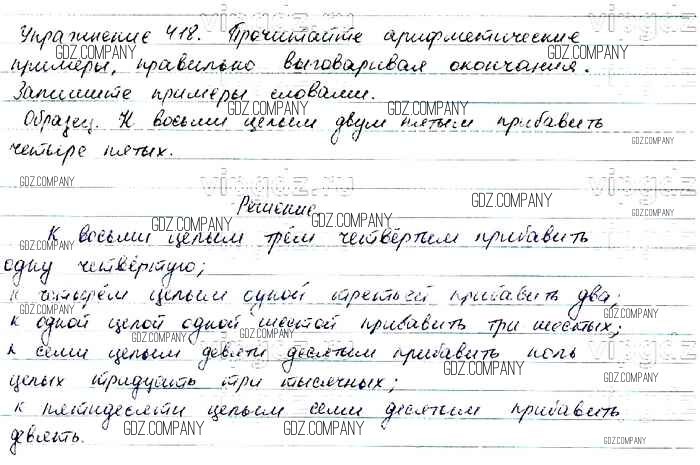 Упражнение 418. Прочитайте арифметические
примеры, правильно выговаривая окончания.
Запишите примеры словами.
Образец. К восьми целым двум пятым прибавить
четыре пятых.
Решение
К восьми целым трём четвёртым прибавить
одну четвёртую;
к четырём целым одной третьей прибавить два;
к одной целой одной шестой прибавить три шестых;
к семи целым девяти десятым прибавить ноль
целых тридцать три тысячных;
к пятидесяти целым семи десятым прибавить
девять.